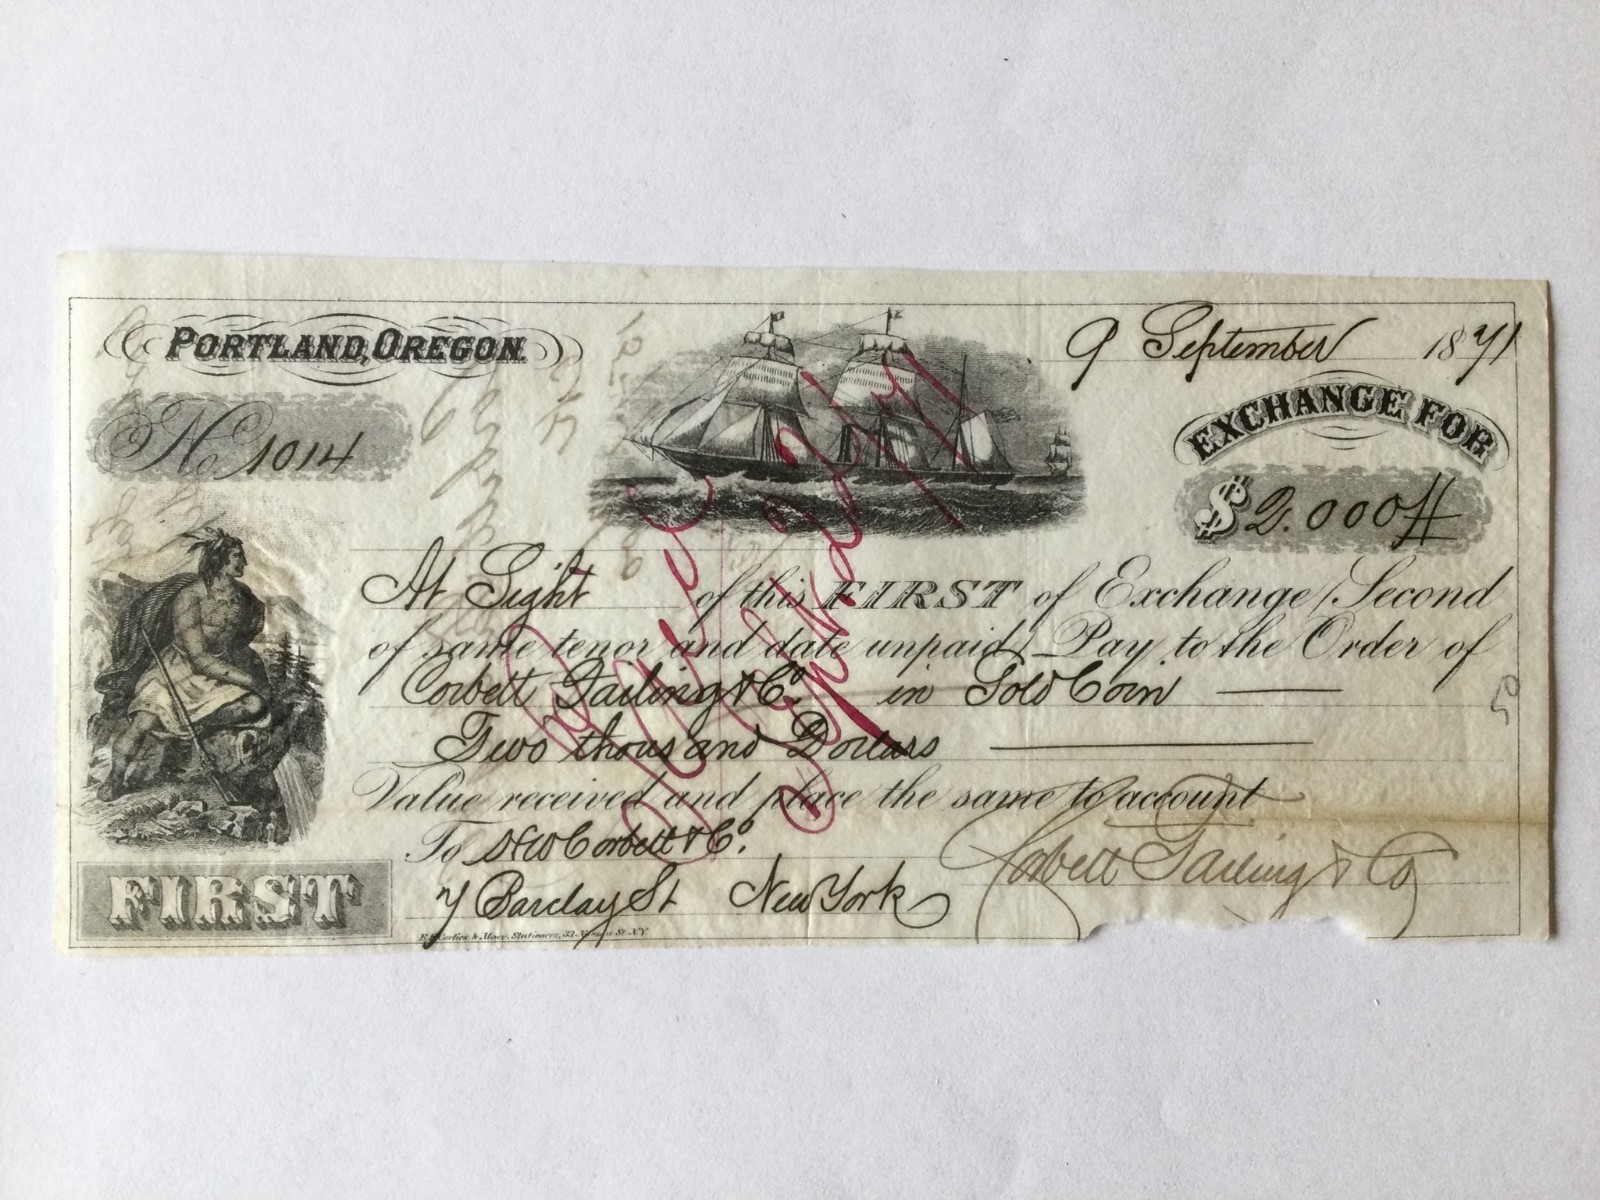 PORTLAND, OREGON.
9 September 1871
No. 1014
EXCHANGE FOR
$2.000
At Sight of this FIRST of Exchange (Second
of same tenor and date unpaid) Pay to the Order of
Corbett Failing & Co. in Gold Coin
Two thousand Dollars
Value received and place the same to account
To H W Corbett & Co.
7 Barclay St New York
Corbett Failing & Co
FIRST
& Macy, Stationers, 37 Nassau St. N.Y.